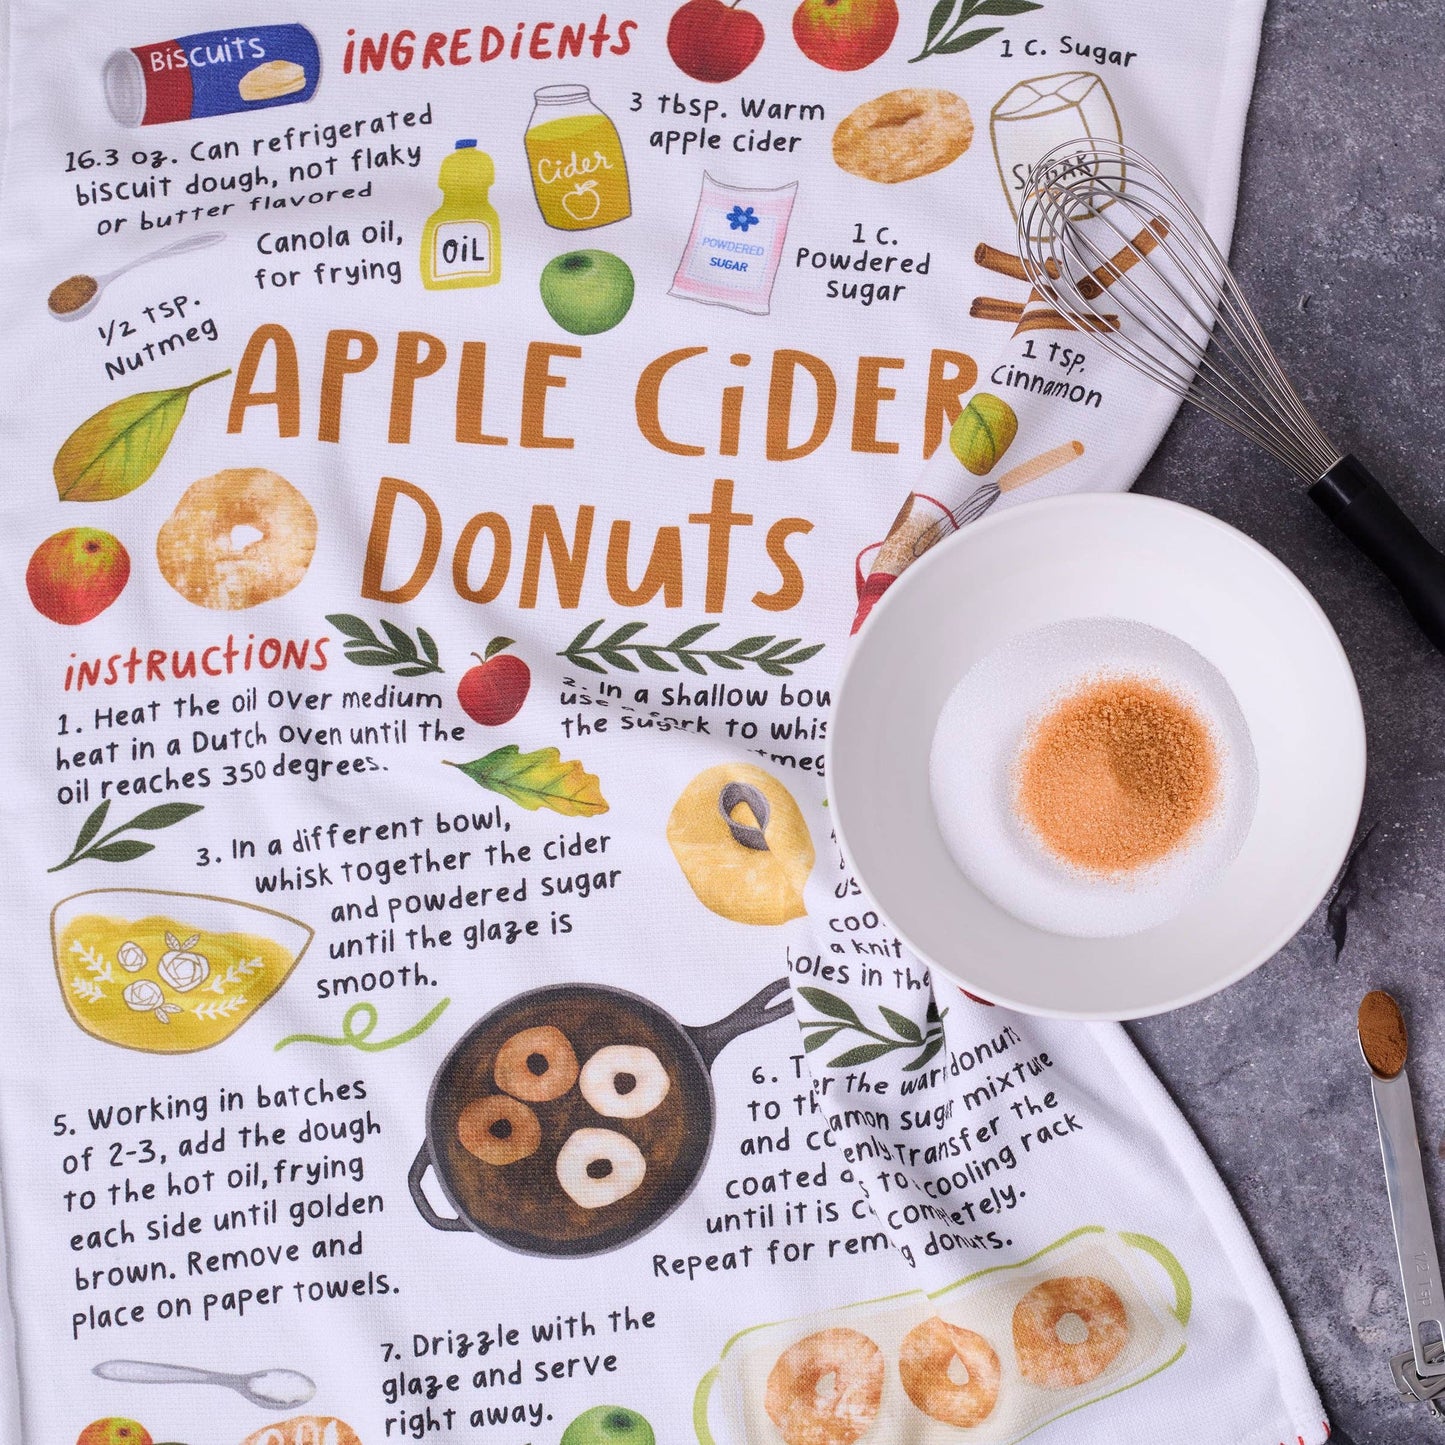 BiSCUitS
iNGREDiENtS
1 C. Sugar
16.3 oz. Can refrigerated
biscuit dough, not flaky
or butter flavored
Cider
3 tbsp. Warm
apple cider
SUGAR
Canola oil,
for frying
OiL
POWDERED
SUGAR
1 C.
Powdered
sugar
1/2 tsp.
Nutmeg
1 tsp.
Cinnamon
APPLE CiDER
DoNuts
iNStRUCtiONS
1. Heat the oil over medium
heat in a Dutch oven until the
oil reaches 350 degrees.
2. In a shallow
the to
3. In a different bowl,
whisk together the cider
and powdered sugar
until the glaze is
smooth.
a
in the
5. Working in batches
of 2-3, add the dough
to the hot oil, frying
each side until golden
brown. Remove and
place on paper towels.
6.
the donuts
to mixture
and
Transfer the
coated to cooling rack
until it is
Repeat for donuts.
7. Drizzle with the
glaze and serve
right away.
1/2 TSP